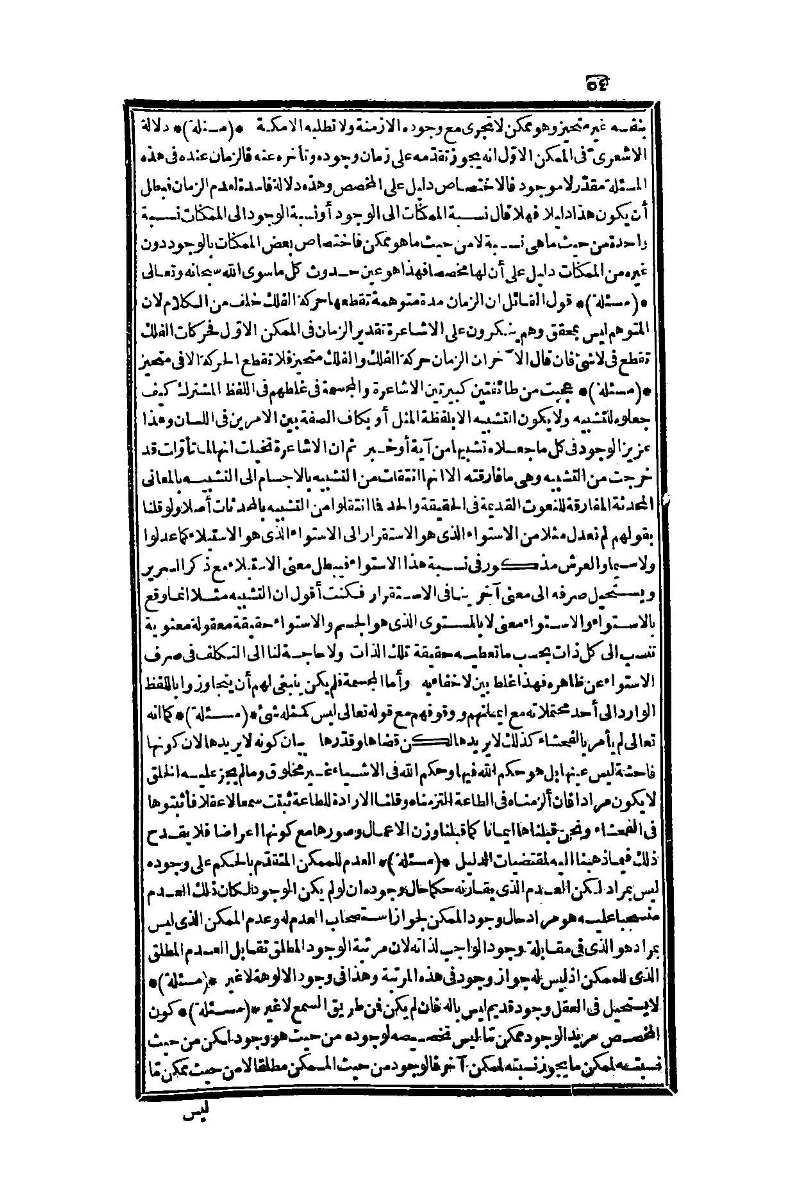 ٥٤
بنفسه غير متحيز وهو ممكن لا تجرى مع وجوده الازمنة ولا تطلبه الامكنة *(مسئلة)* دلالة
الاشعرى فى الممكن الاوّل انه يجوز تقدّمه على زمان وجوده وتأخره عنه فالزمان عنده فى هذه
المسئلة مقدّر لا موجود فالاختصاص دليل على المخصص وهذه دلالة فاسدة لعدم الزمان فبطل
أن يكون هذا دليلا فهلا قال نسبة الممكنات الى الوجود أو نسبة الوجود الى الممكنات نسبة
واحدة من حيث ما هى نسبة لا من حيث ما هو ممكن فاختصاص بعض الممكنات بالوجود دون
غيره من الممكنات دليل على أن لها مخصصا فهذا هو عين حدوث كل ما سوى الله سبحانه وتعالى
*(مسئلة)* قول القائل ان الزمان مدة متوهمة تقطعها حركة الفلك خلف من الكلام لان
المتوهم ليس بمحقق وهم ينكرون على الاشاعرة تقدير الزمان فى الممكن الاوّل فحركات الفلك
تقطع فى لاشئ فان قال الآخر ان الزمان حركة الفلك والفلك متحيز فلا تقطع الحركة الا فى متحيز
*(مسئلة)* عجبت من طائفتين كبيرتين الاشاعرة والمجسمة فى غلطهم فى اللفظ المشترك كيف
جعلوه للتشبيه ولا يكون التشبيه الا بلفظة المثل أو بكاف الصفة بين الامرين فى اللسان وهذا
عزيز الوجود فى كل ما جعلاه تشبيها من آية أو خبر ثم ان الاشاعرة تخيلت انها لما تأوّلت قد
خرجت من التشبيه وهى ما فارقته الا انها انتقلت من التشبيه بالاجسام الى التشبيه بالمعانى
المحدثة المفارقة للنعوت القديمة فى الحقيقة والحد فما انتقلوا من التشبيه بالمحدثات أصلا ولو قلنا
بقولهم لم نعدل مثلا من الاستواء الذى هو الاستقرار الى الاستواء الذى هو الاستيلاء كما عدلوا
ولا سيما والعرش مذكور فى نسبة هذا الاستواء فيبطل معنى الاستيلاء مع ذكر السرير
ويستحيل صرفه الى معنى آخر ينافى الاستقرار فكنت أقول ان التشبيه مثلا انما وقع
بالاستواء والاستواء معنى لا بالمستوى الذى هو الجسم والاستواء حقيقة معقولة معنوية
تنسب الى كل ذات بحسب ما تعطيه حقيقة تلك الذات ولا حاجة لنا الى التكلف فى صرف
الاستواء عن ظاهره فهذا غلط بين لا خفاء به وأما المجسمة فلم يكن ينبغى لهم أن يتجاوزوا باللفظ
الوارد الى أحد محتملاته مع ايمانهم ووقوفهم مع قوله تعالى ليس كمثله شئ *(مسئلة)* كما انه
تعالى لم يأمر بالفحشاء كذلك لا يريدها لكن قضاها وقدّرها بيان كونه لا يريدها لان كونها
فاحشة ليس عينها بل هو حكم الله فيها وحكم الله فى الاشياء غير مخلوق وما لم يجز عليه الخلق
لا يكون مرادا فان ألزمناه فى الطاعة التزمناه وقلنا الارادة للطاعة ثبتت سمعا لا عقلا فأثبتوها
فى الفحشاء ونحن قبلناها ايمانا كما قبلنا وزن الاعمال وصورها مع كونها اعراضا فلا يقدح
ذلك فيما ذهبنا اليه لمقتضيات الدليل *(مسئلة)* العدم للممكن المتقدّم بالحكم على وجوده
ليس بمراد لكن العدم الذى يقارنه حكما حال وجوده ان لو لم يكن الوجود لكان ذلك العدم
منسحبا عليه هو مراد حال وجود الممكن لجواز استصحاب العدم له وعدم الممكن الذى ليس
بمراد هو الذى فى مقابلة وجود الواجب لذاته لان مرتبة الوجود المطلق تقابل العدم المطلق
الذى للممكن اذ ليس له جواز وجود فى هذه المرتبة وهذا فى وجود الالوهة لا غير *(مسئلة)*
لا يستحيل فى العقل وجود قديم ليس باله فان لم يكن فمن طريق السمع لا غير *(مسئلة)* كون
المخصص مريد الوجود ممكن مّا ليس تخصيصه لوجوده من حيث هو وجود لكن من حيث
نسبته لممكن ما يجوز نسبته لممكن آخر فالوجود من حيث الممكن مطلقا لا من حيث ممكن مّا
ليس